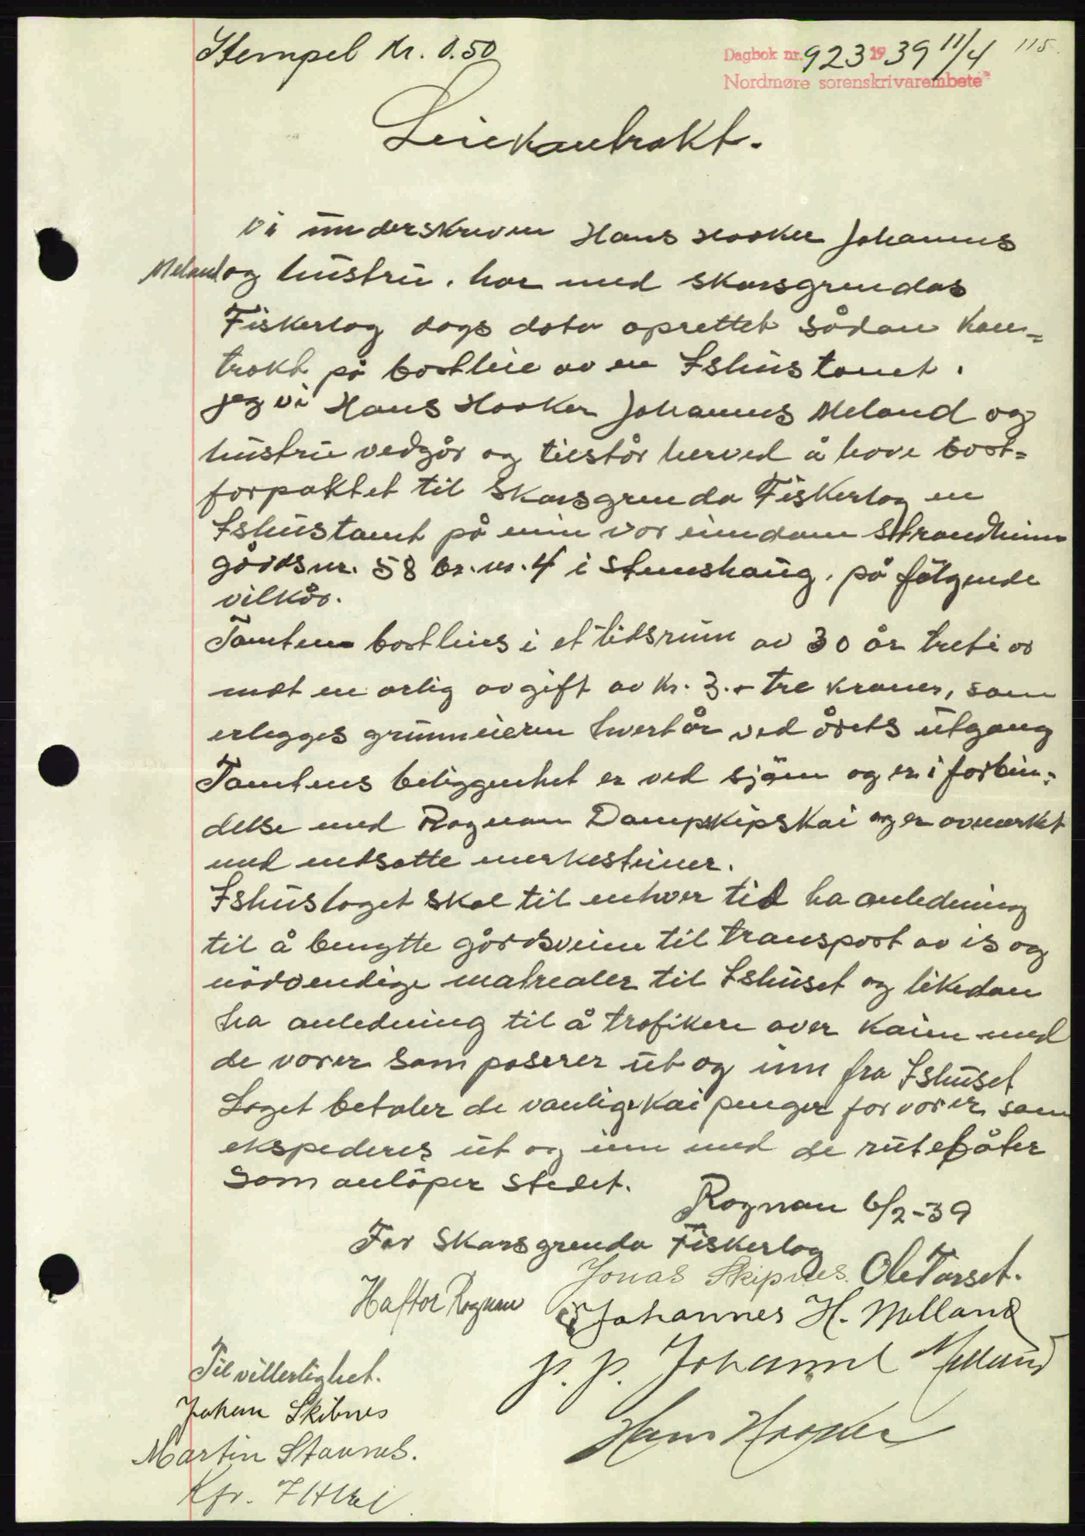 Stempel Kr. 0.50
Dagbok nr. 923 1939 11/4 115.
Nordmøre sorenskrivarembete
Leiekontrakt.
Vi underskreven Hans Hooker Johannes
Meland og hustru. har med Skarsgrendas
Fiskerlag dags dato oprettet sådan kon=
trakt på bortleie av en Ishustomt.
Jeg vi Hans Hooker Johannes Meland og
hustru vedgår og tilstår herved å have bort=
forpaktet til Skarsgrenda Fiskerlag en
Ishustomt på min vor eiendom Strandheim
gårdsnr. 58 br.nr. 4 i Stemshaug. på følgende
vilkår.
Tomten bortleies i et tidsrum av 30 år treti år
mot en årlig avgift av kr. 3.- tre kroner, som
erlegges grunneieren hvert år ved årets utgang
Tomtens beliggenhet er ved sjøen og er i forbin=
delse med Rognan Dampskipskai og er avmerket
med nedsatte merkesteiner.
Ishuslaget skal til enhver tid ha anledning
til å benytte gårdsveien til transport av is og
nødvendige matrealer til Ishuset og likedan
ha anledning til å trafikere over kaien med
de varer som paserer ut og inn fra Ishuset
Laget betaler de vanlige kaipenger for varer som
ekspederes ut og inn med de rutebåter
som anløper stedet.
Rognan 6/2-39
For Skarsgrenda Fiskerlag
Jonas Skipnes. Ole Tørset.
Haftor Rognan
Johannes H. Melland
p. p. Johanne Melland
Hans Hooker
Til vitterlighet.
Johan Skibnes
Martin Stavnes.
Kfr.